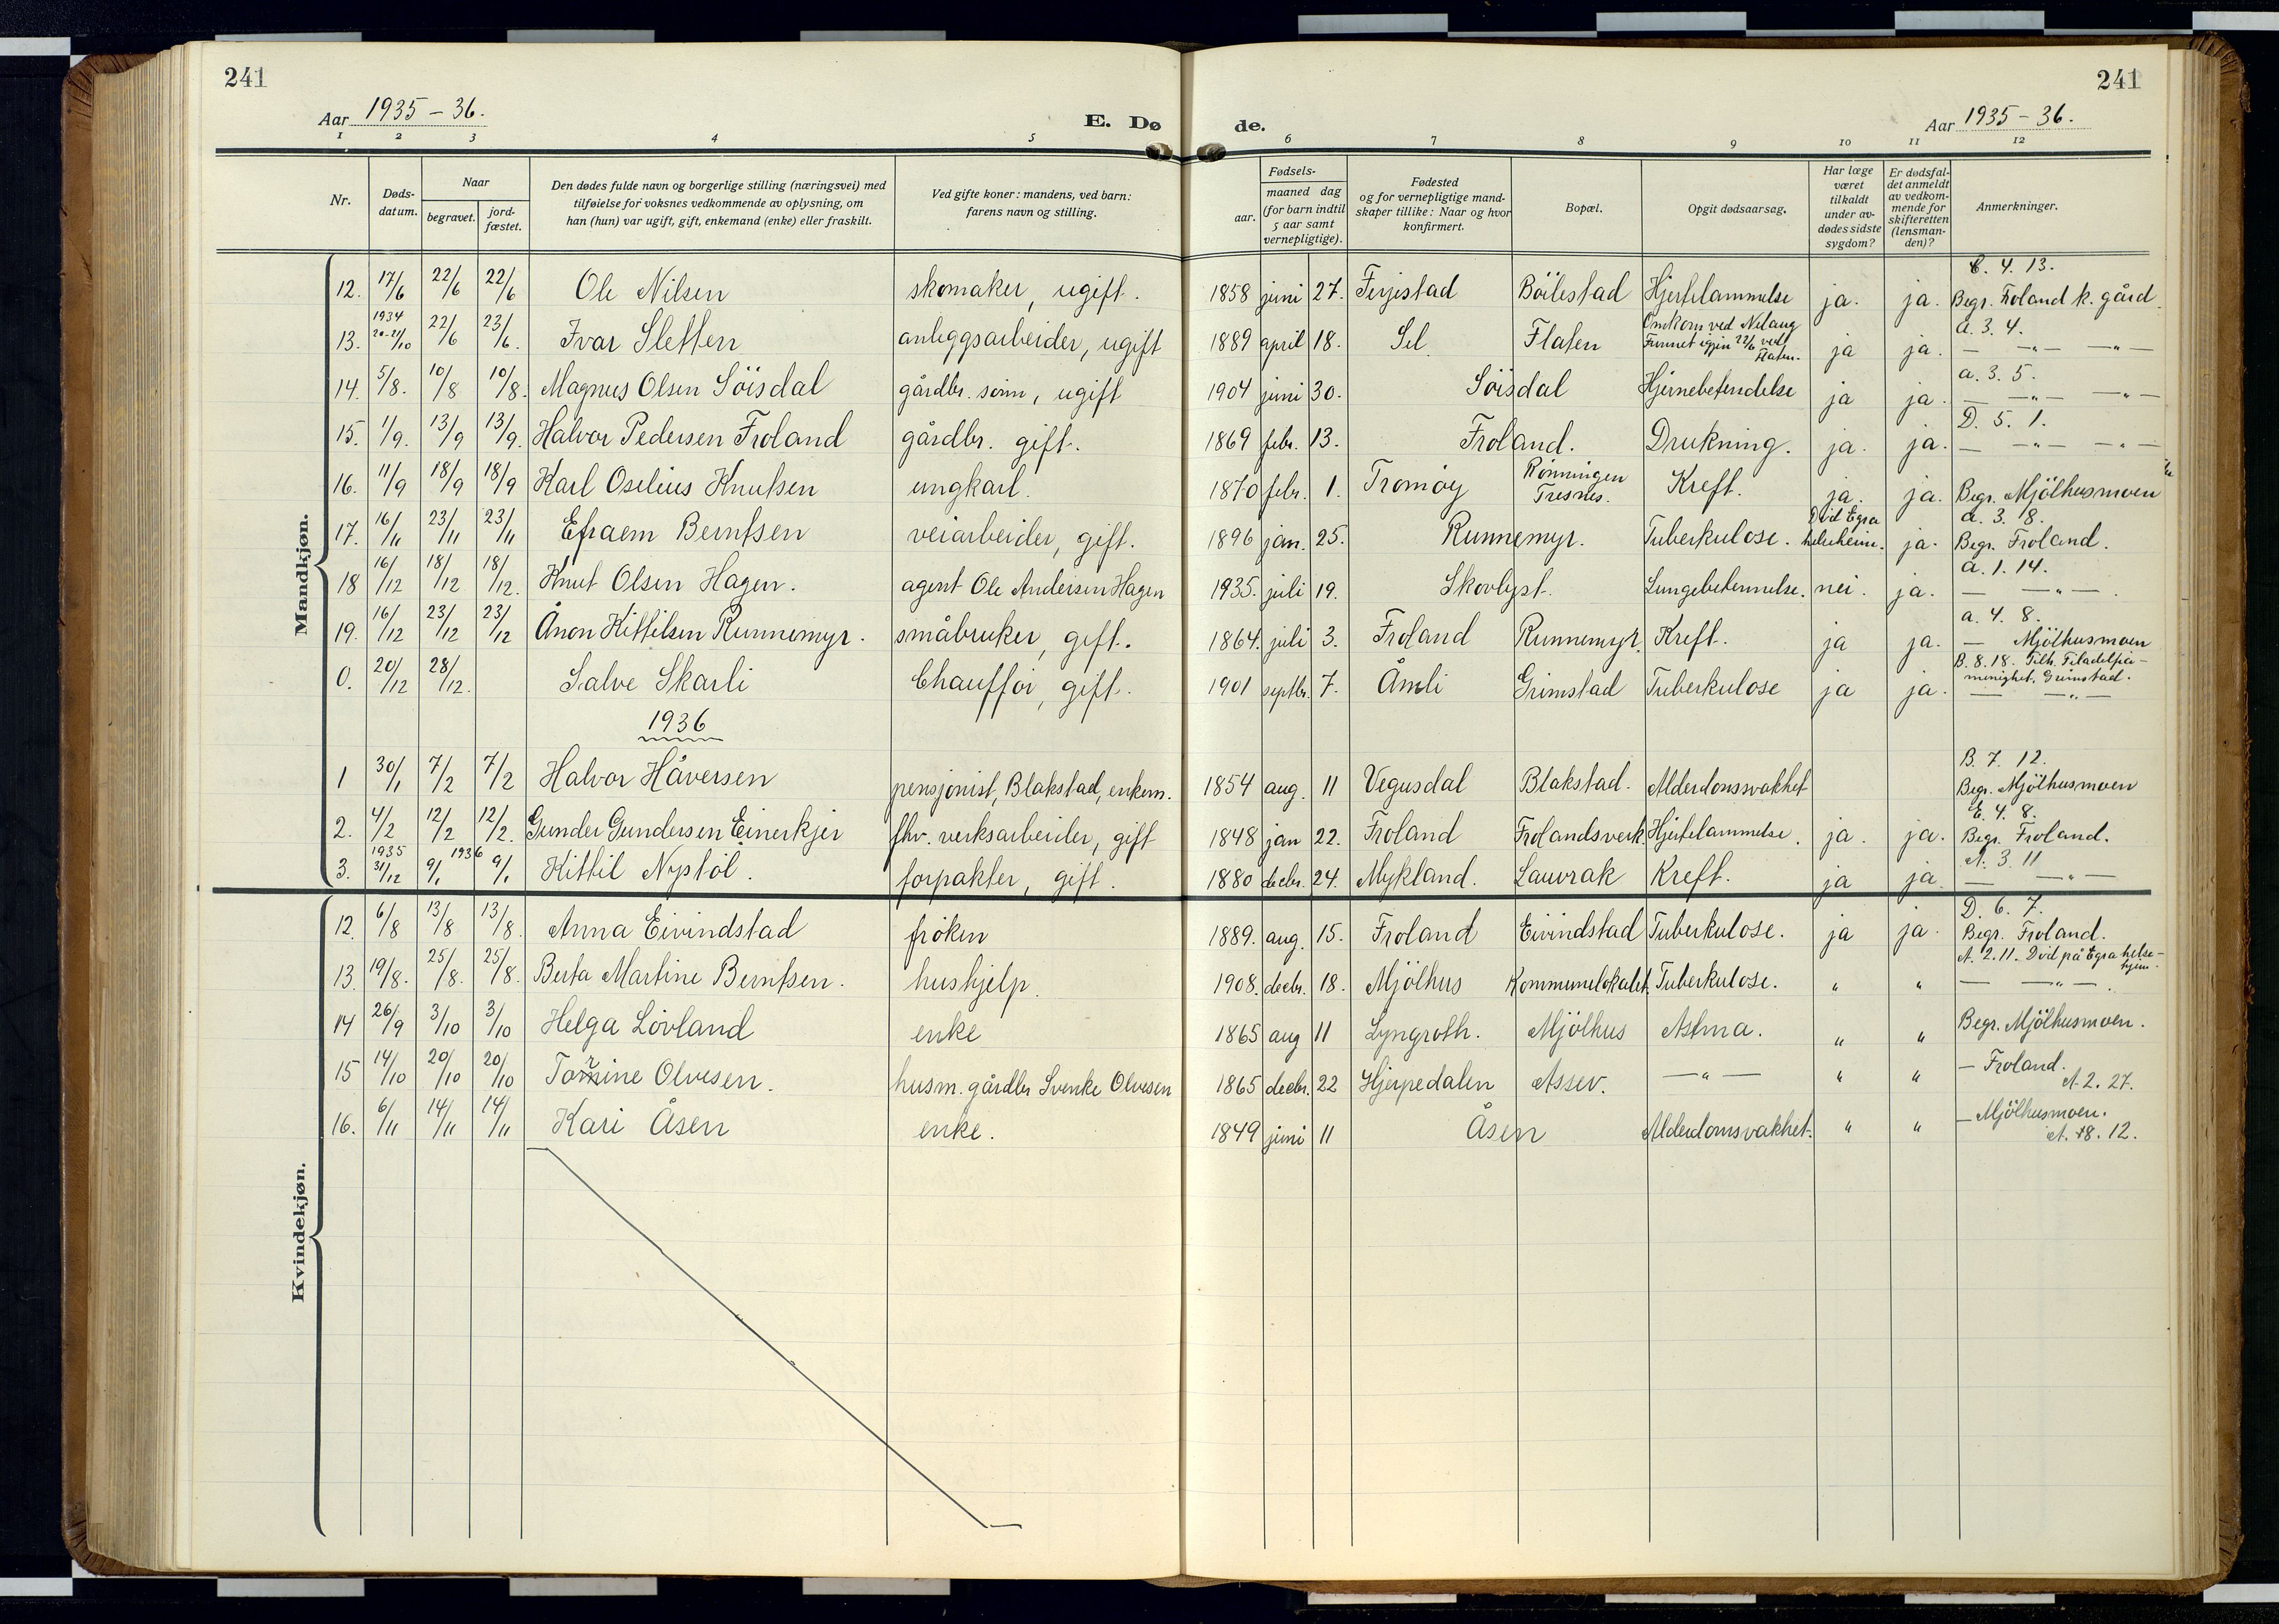 241
241
Aar 1935 – 36.
E. Dø
de.
Aar 1935 – 36.
1 2 3 4 5 6 7 8 9 10 11 12
Nr.
Døds-
datum.
Naar
begravet.
jord-
fæstet.
Den dødes fulde navn og borgerlige stilling (næringsvei) med
tilføielse for voksnes vedkommende av oplysning, om
han (hun) var ugift, gift, enkemand (enke) eller fraskilt.
Ved gifte koner: mandens, ved barn:
farens navn og stilling.
Fødsels-
aar.
maaned dag
(for barn indtil
5 aar samt
vernepligtige).
Fødested
og for vernepligtige mand-
skaper tillike: Naar og hvor
konfirmert.
Bopæl.
Opgit dødsaarsag.
Har læge
været
tilkaldt
under av-
dødes sidste
sygdom?
Er dødsfal-
det anmeldt
av vedkom-
mende for
skifteretten
(lensman-
den)?
Anmerkninger.
Mandkjøn.
12. 17/6 22/6 22/6 Ole Nilsen skomaker, ugift. 1858 juni 27. Ferjestad Böilestad Hjertelammelse ja. ja. C. 4. 13. Begr. Froland k. gård.
13. 1934 20-21/10 22/6 23/6. Ivar Sletten anleggsarbeider, ugift 1889 april 18. Sel Flaten Omkom ved Nelaug Funnet igjen 22/6 ved Flaten. ja ja. a. 3. 4. — — " — — " —
14. 5/8. 10/8 10/8. Magnus Olsen Söisdal gårdbr. sönn, ugift 1904 juni 30. Söisdal Hjernebetendelse ja ja. a. 3. 5. — — " — — " —
15. 1/9. 13/9 13/9. Halvor Pedersen Froland gårdbr. gift. 1869 febr. 13. Froland. Drukning. ja. ja. D. 5. 1. — — " — — " —
16. 11/9 18/9 18/9 Karl Oselius Knutsen ungkarl. 1870 febr. 1. Tromöy Rönningen Tresnes. Kreft. ja. ja. Begr. Mjölhusmoen
17. 16/11 23/11 23/11 Efraem Berntsen veiarbeider, gift. 1896 jan. 25. Runnemyr. Tuberkulose. Död Egra helseheim. ja. a. 3. 8. Begr. Froland.
18 16/12 18/12 18/12. Knut Olsen Hagen. agent Ole Andersen Hagen 1935. juli 19. Skovlyst. Lungebetennelse. nei. ja. a. 1. 14. — — " — .
19. 16/12 23/12 23/12 Ånon Kittilsen Runnemyr. småbruker, gift. 1864. juli 3. Froland Runnemyr. Kreft. ja ja. a. 4. 8. — Mjölhusmoen
0. 20/12 28/12. Salve Skarli Chaufför, gift. 1901 septbr. 7. Åmli Grimstad Tuberkulose ja ja. B. 8. 18. Tilh. Filadelfia-menighet, Grimstad. — — " —
1936
1 30/1 7/2 7/2 Halvor Håversen pensjonist, Blakstad, enkem. 1854 aug. 11 Vegusdal Blakstad. Alderdomsvakhet B. 7. 12. Begr. Mjölhusmoen
2. 4/2 12/2 12/2. Gunder Gundersen Einerkjer fhv. verksarbeider, gift 1848 jan 22. Froland Frolandsverk. Hjertelammelse. ja. ja. E. 4. 8. Begr. Froland.
3. 1935 31/12 9/1 1936 9/1 Kittil Nystöl. forpakter, gift. 1880 decbr. 24. Mykland. Lauvrak Kreft. ja ja. A. 3. 11 — — " —
Kvindekjøn.
12. 6/8 13/8 13/8. Anna Eivindstad fröken 1889. aug. 15. Froland Eivindstad Tuberkulose. ja ja. D. 6. 7. Begr. Froland.
13. 19/8. 25/8. 25/8. Berta Martine Berntsen. hushjelp. 1908. decbr. 18. Mjölhus Kommunelokalet. Tuberkulose. " " A. 2. 11. Död på Egra helse-hjem. — — " — .
14 26/9 3/10 3/10 Helga Lövland enke 1865 aug 11 Lyngroth. Mjölhus Astma. " " Begr. Mjölhusmoen.
15 14/10 20/10 20/10 Torine Olvesen. husm. gårdbr Svenke Olvesen 1865 decbr. 22 Hjerpedalen Assev. — " — " " — Froland. A. 2. 27.
16. 6/11 14/11 14/11 Kari Åsen enke. 1849 juni 11 Åsen Alderdomsvakhet. " " — Mjölhusmoen. A. 18. 12.